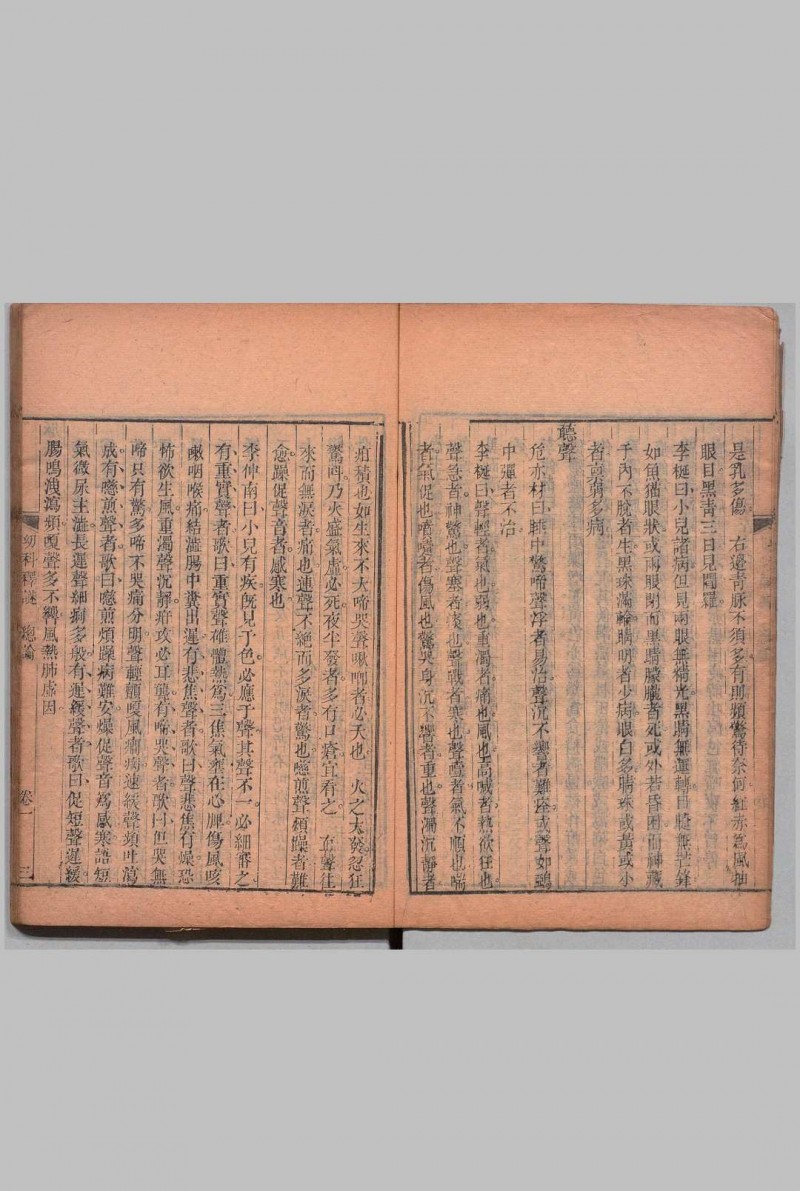 是乳多傷　右邊青脉不須多有則頻驚待奈何紅赤為風抽
眼目黑青三日見閻羅
李梴曰小兒諸病但見兩眼無精光黑睛無運轉目睫無芒鋒
如魚猫眼狀或兩眼閉而黑睛朦朧者死或外若昏困而神藏
于內不脫者生黑珠滿輪睛明者少病眼白多睛珠或黃或小
者稟弱多病
聽聲
危亦林曰睡中驚啼聲浮者易治聲沉不響者難痊或聲如鴉
中彈者不治
李梴曰聲輕者氣也弱也重濁者痛也風也高喊者熱欲狂也
聲急者神驚也聲塞者痰也聲戰者寒也聲噎者氣不順也喘
者氣促也噴嚏者傷風也驚哭身沉不響者重也聲濁沉靜者
疳積也如生來不大啼哭聲啾唧者必夭也　火之大發忽狂
驚呌乃火盛氣虛必死夜尘發者多有口瘡宜看之　
來而無淚者痛也連聲不絕而多淚者驚也𢠵煎聲煩躁者難
愈躁促聲音者感寒也
李仲南曰小兒有疾旣見于色必應于聲其聲不一必細審之
有重實聲者歌曰重實聲雄體熱爲三焦氣壅在心脾傷風咳
嗽咽喉痛結澁腸中糞出遲有悲焦聲者歌曰聲悲焦有燥恐
怖欲生風重濁聲沉靜疳攻必耳聾有啼哭聲者歌曰但哭無
啼只有驚多啼不哭痛分明聲顫顫嗄風癎病速緩聲頻吐瀉
成有𢠵煎聲者歌曰𢠵煎煩躁病難安燥促聲音爲感寒語短
氣微尿主澁長遲聲細痢多般有遲緩聲者歌曰促短聲遲緩
腸鳴洩瀉頻嗄聲多不響風熱肺虛因
幼科釋謎　總論　卷一　三